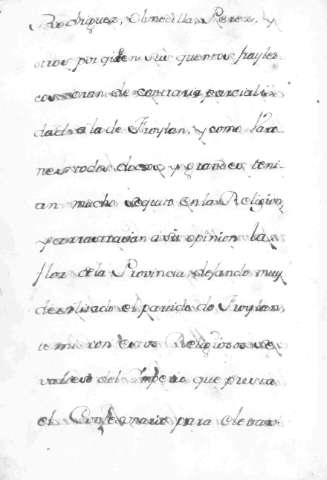 Rodriguez, Olmedilla Perez, y
otros por quien sus quentos frayles
cos eran de contraria parciali
dad a la de Froylan, y como Va-
nes todos doctos y grandes teni
an mucho sequito en la Religion
y contrastavan a su opinion la
flor de la Provincia dejando muy
desvalido el partido de Froylan,
temieron estos Religiosos se
valiese del Imperio que prevenia
el Confesonario para elevar